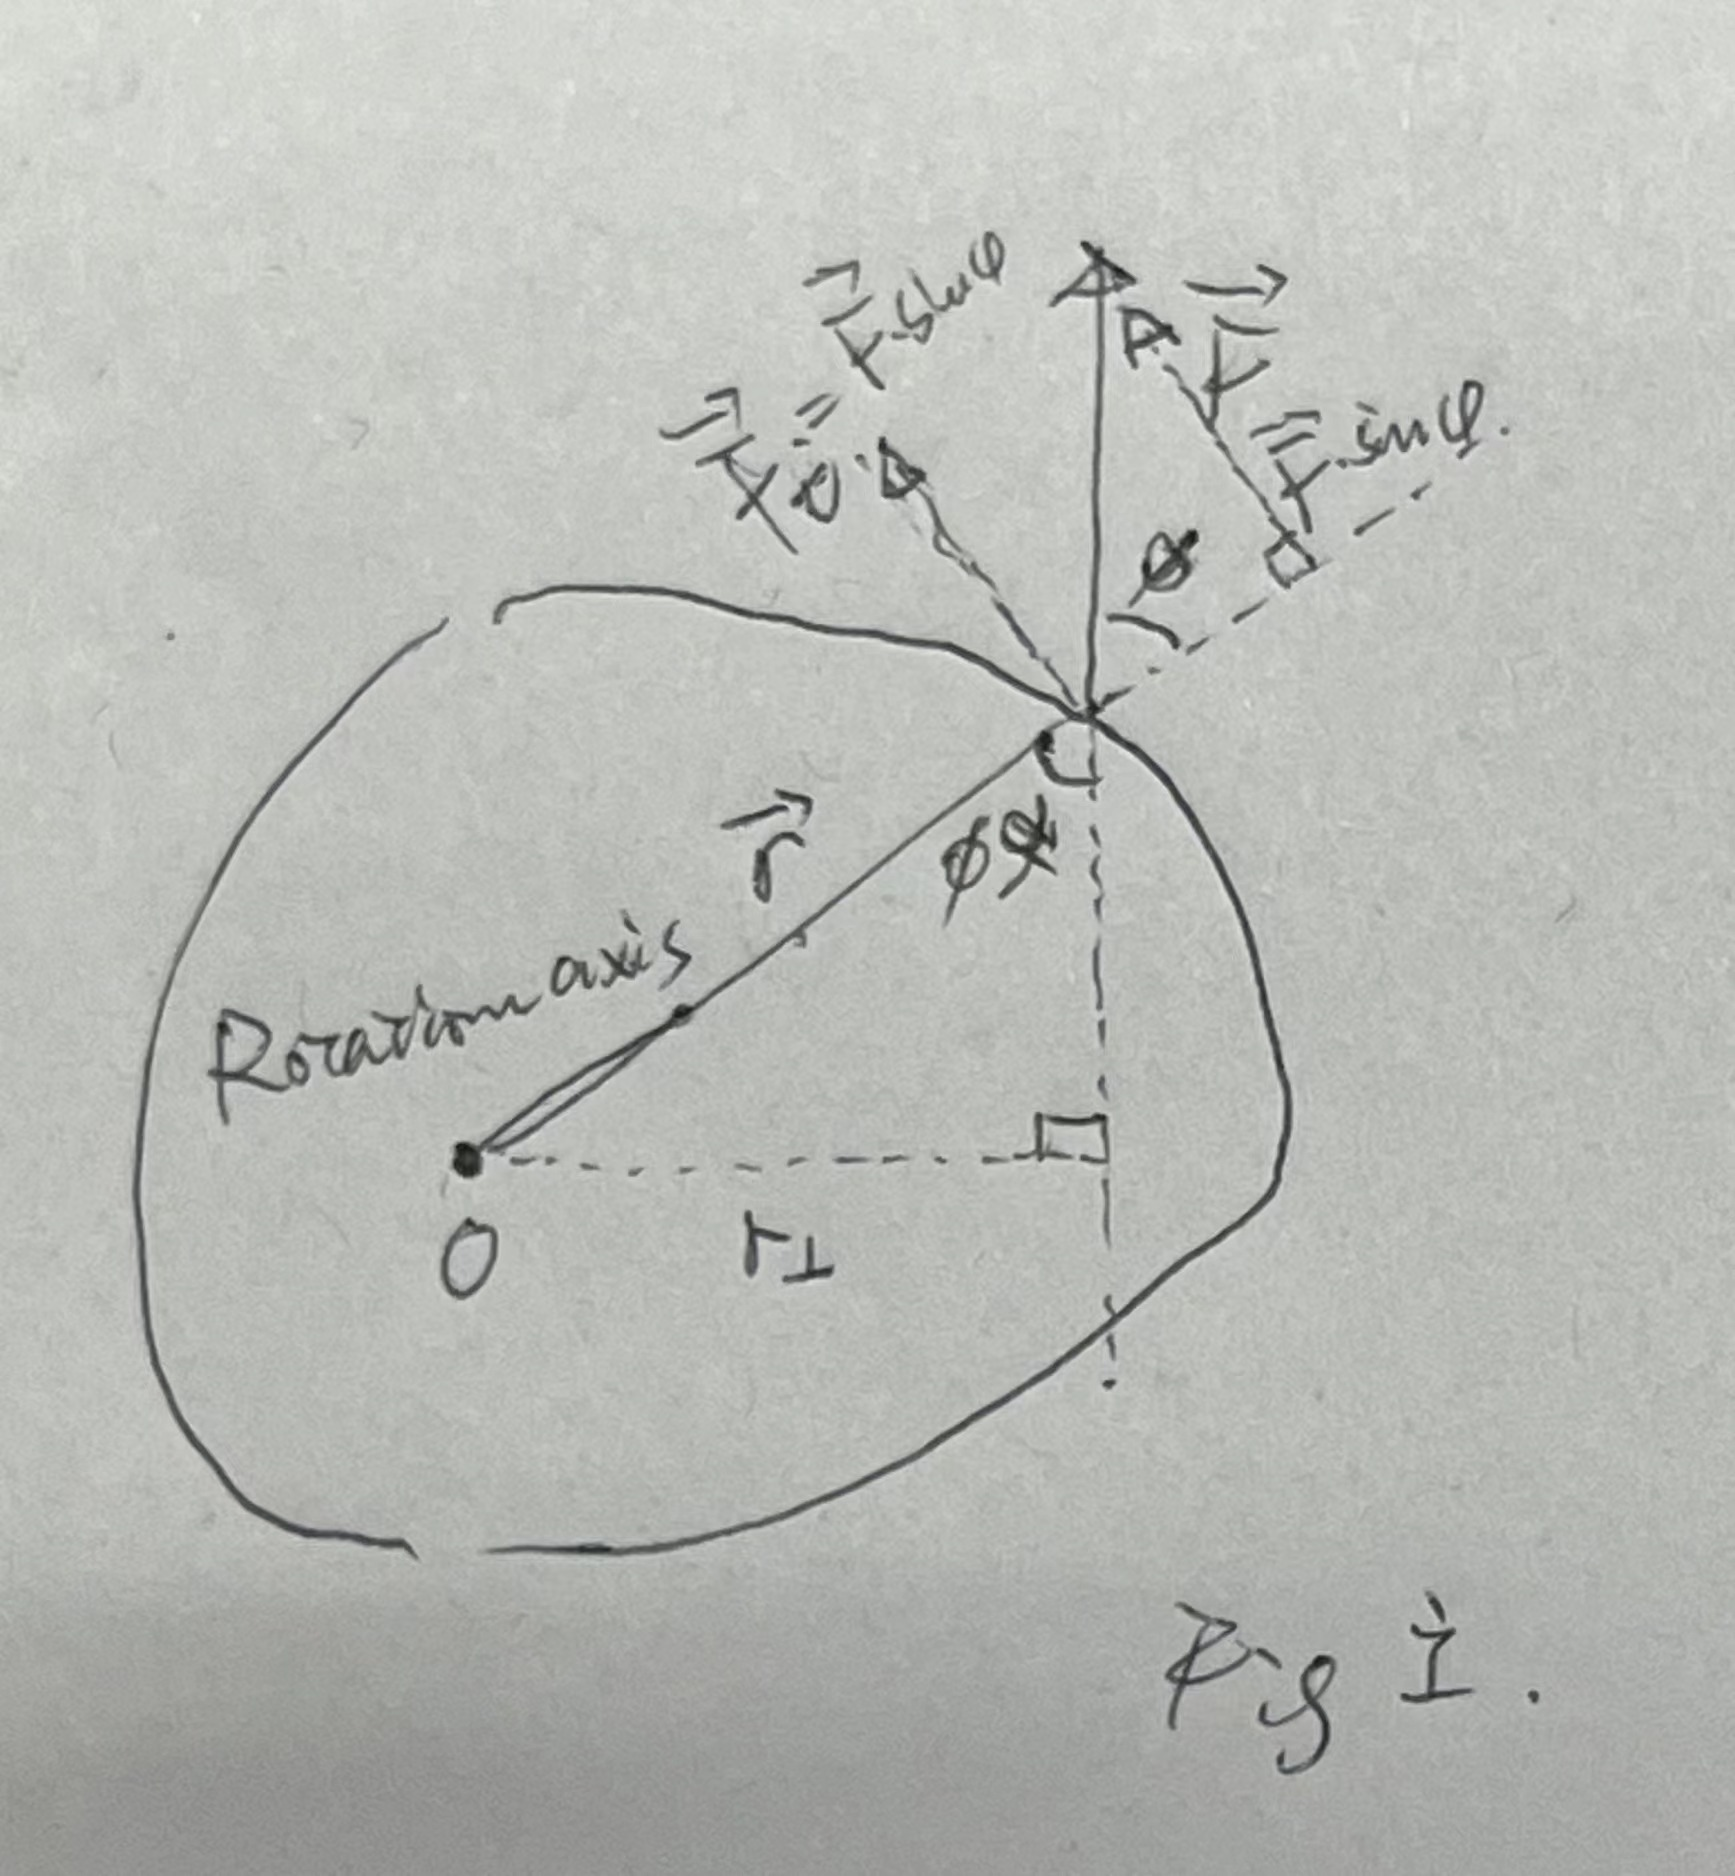 F⃗ sin φ
F⃗θ =
F⃗
F⃗ sin φ.
ϕ
r⃗
ϕ
Rotation axis
O
r⊥
Fig 1.